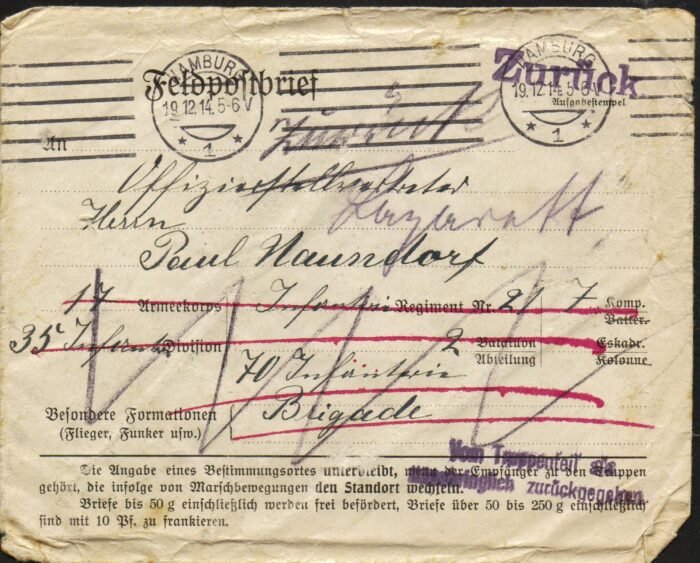 HAMBURG
19.12.14.5-6V
* 1 *
HAMBURG
19.12.14.5-6V
* 1 *
Feldpostbrief
Zurück
Aufgabestempel
An
Zurück
Offizierstellvertreter
Lazarett
Herrn
Paul Naundorf
17 Armeekorps Infantrie Regiment Nr. 21 7 Komp.
Batter.
35 Infant. Division 2 Bataillon Eskadr.
Abteilung Kolonne
70 Infantrie
Brigade
Besondere Formationen
(Flieger, Funker usw.)
Vom Truppenteil als
unanbringlich zurückgegeben.
Die Angabe eines Bestimmungsortes unterbleibt, wenn der Empfänger zu den Truppen
gehört, die infolge von Marschbewegungen den Standort wechseln.
Briefe bis 50 g einschließlich werden frei befördert, Briefe über 50 bis 250 g einschließlich
sind mit 10 Pf. zu frankieren.